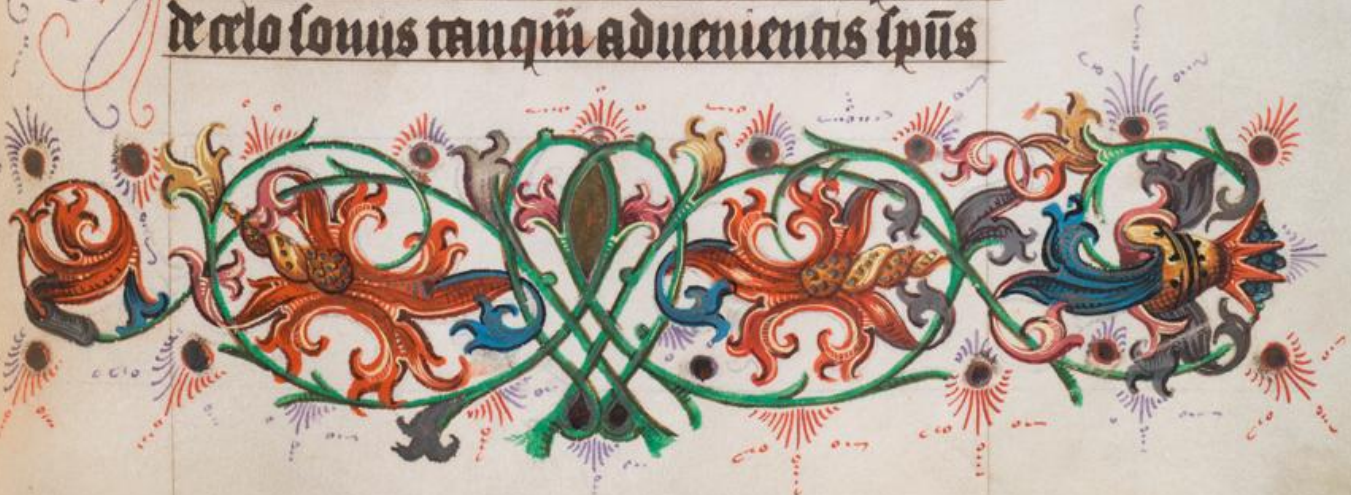 de celo sonus tanqm̄ aduenientis sp̄us